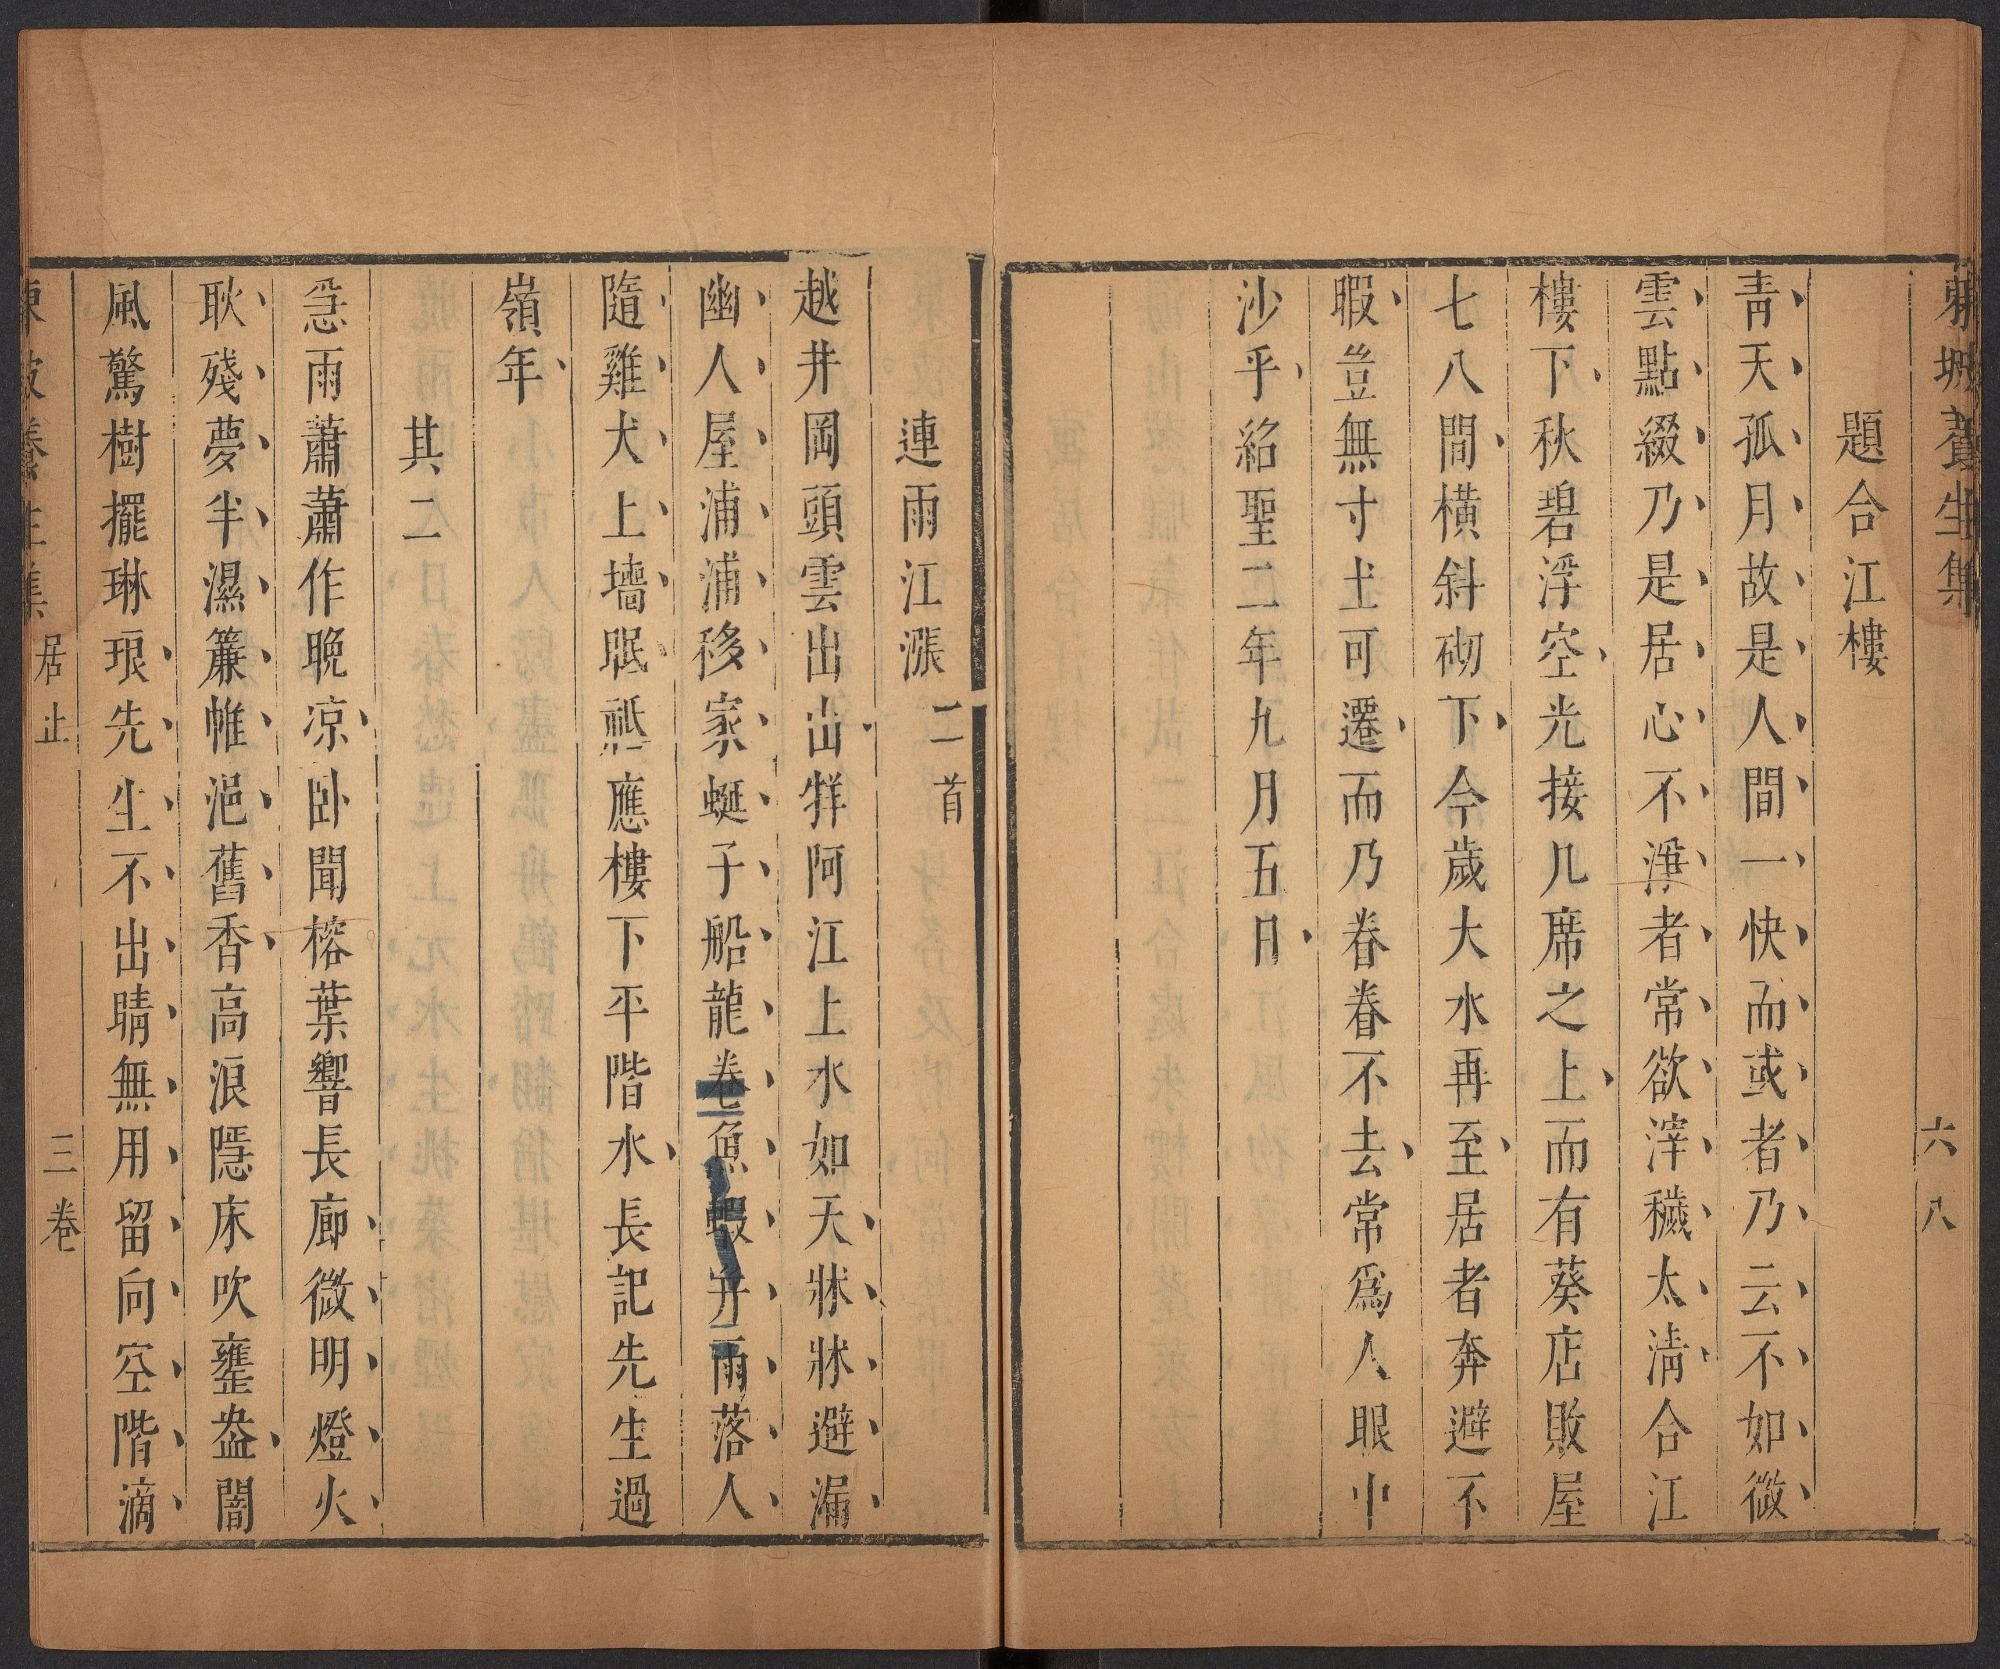 東坡養生集
六八
題合江樓
青天孤月故是人間一快而或者乃云不如微
雲點綴乃是居心不淨者常欲滓穢太淸合江
樓下秋碧浮空光接几席之上而有葵店敗屋
七八間橫斜砌下今歲大水再至居者奔避不
暇豈無寸土可遷而乃眷眷不去常爲人眼中
沙乎紹聖二年九月五日
連雨江漲二首
越井岡頭雲出山牂牁江上水如天牀牀避漏
幽人屋浦浦移家蜒子船龍卷魚蝦并雨落人
隨雞犬上墻眠秪應樓下平階水長記先生過
嶺年
其二
急雨蕭蕭作晚凉卧聞榕葉響長廊微明燈火
耿殘夢半濕簾帷浥舊香高浪隱床吹甕盎闇
風驚樹擺琳琅先生不出晴無用留向空階滴
東坡養生集
居止
三卷